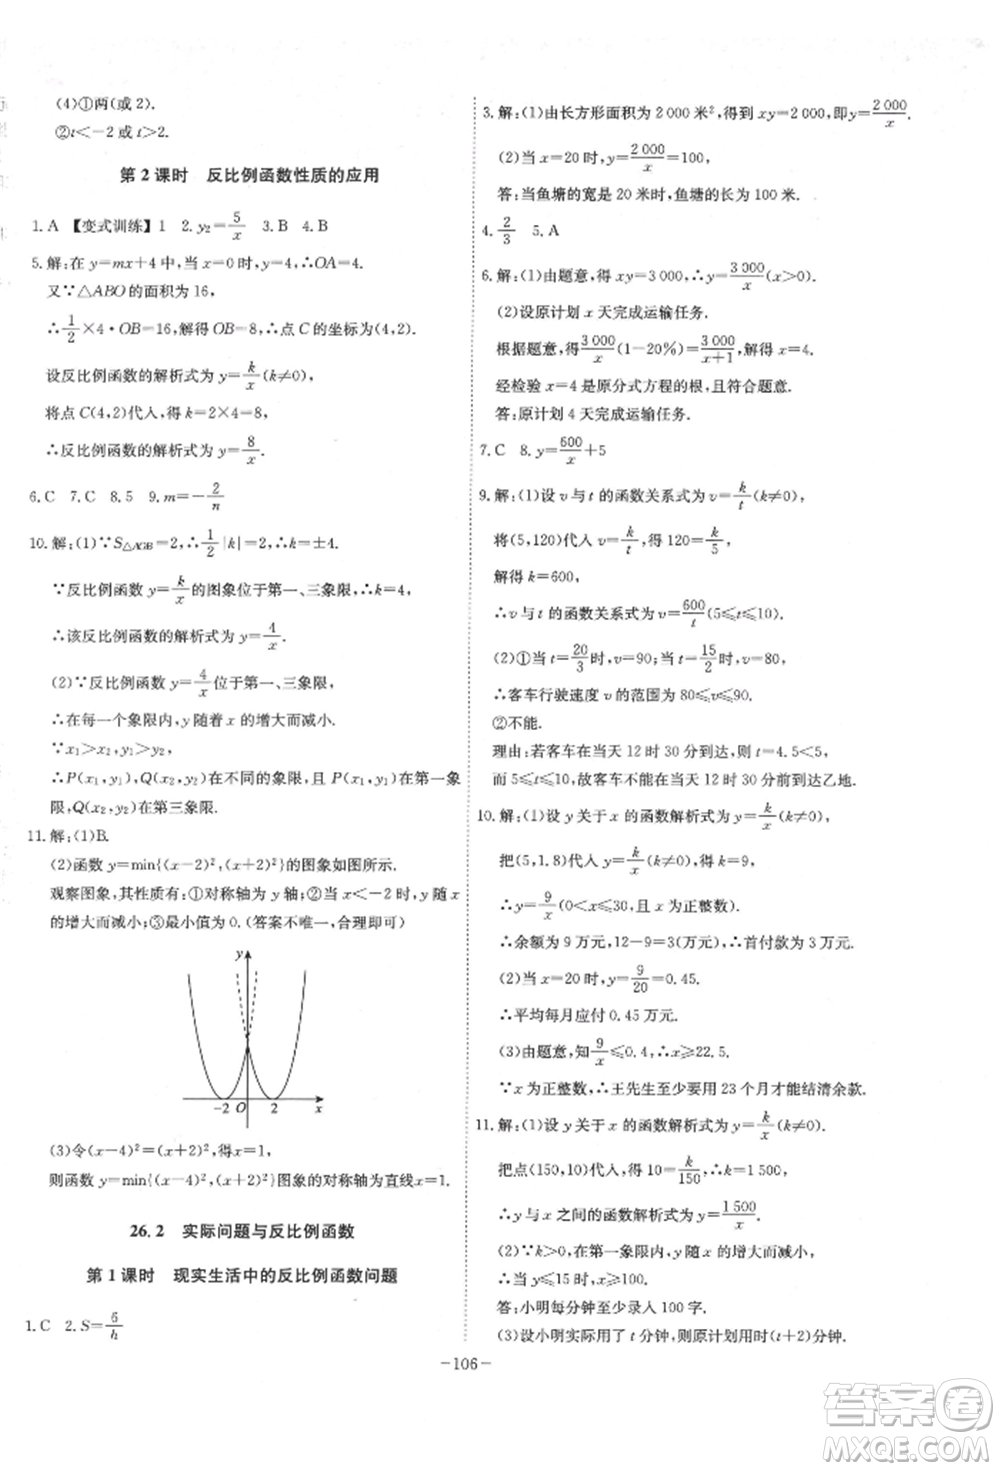 (4)①两(或2).
②t<-2或t>2.
第2课时 反比例函数性质的应用
1.A 【变式训练】1 2.y₂=5/x 3.B 4.B
5.解:在y=mx+4中,当x=0时,y=4,∴OA=4.
又∵△ABO的面积为16,
∴1/2×4·OB=16,解得OB=8,∴点C的坐标为(4,2).
设反比例函数的解析式为y=k/x(k≠0),
将点C(4,2)代人,得k=2×4=8,
∴反比例函数的解析式为y=8/x.
6.C 7.C 8.5 9.m=-2/n
10.解:(1)∵S△AOB=2,∴1/2|k|=2,∴k=±4.
∵反比例函数y=k/x的图象位于第一、三象限,∴k=4,
∴该反比例函数的解析式为y=4/x.
(2)∵反比例函数y=4/x位于第一、三象限,
∴在每一个象限内,y随着x的增大而减小.
∵x₁>x₂,y₁>y₂,
∴P(x₁,y₁),Q(x₂,y₂)在不同的象限,且P在第一象
限,Q(x₂,y₂)在第三象限.
11.解:(1)B.
(2)函数y=min{(x-2)²,(x+2)²}的图象如图所示.
观察图象,其性质有:①对称轴为y轴;②当x<-2时,y随x
的增大而减小;③最小值为0.(答案不唯一,合理即可)
y
-2 O 2 x
(3)令(x-4)²=(x+2)²,得x=1,
则函数y=min{(x-4)²,(x+2)²}图象的对称轴为直线x=1.
26.2 实际问题与反比例函数
第1课时 现实生活中的反比例函数问题
1.C 2.S=6/h
3.解:(1)由长方形面积为2 000米²,得到xy=2 000,即y=2 000/x.
(2)当x=20时,y=2 000/x=100,
答:当鱼塘的宽是20米时,鱼塘的长为100米.
4.2/3 5.A
6.解:(1)由题意得,xy=3 000,∴y=3 000/x(x>0).
(2)设原计划x天完成运输任务.
根据题意,得3 000/x(1-20%)=3 000/(x+1),解得x=4.
经检验x=4是原分式方程的根,且符合题意.
答:原计划4天完成运输任务.
7.C 8.y=600/x+5
9.解:(1)设v与t的函数关系式为v=k/t(k≠0),
将(5,120)代人v=k/t,得120=k/5,
解得k=600,
∴v与t的函数关系式为v=600/t(5≤t≤10).
(2)①当t=20/3时,v=90,当t=15/2时,v=80,
∴客车行驶速度v的范围为80≤v≤90.
②不能.
理由:若客车在当天12时30分到达,则t=4.5<5,
而5≤t≤10,故客车不能在当天12时30分到达乙地.
10.解:(1)设y关于x的函数解析式为y=k/x(k≠0),
把(5,1.8)代人,得k=9,
∴y=9/x(0<x≤30,且x为正整数).
∴余额为9万元,12-9=3(万元),∴首付款为3万元.
(2)当x=20时,y=9/20=0.45.
∴平均每月应付0.45万元.
(3)由题意,知9/x≤0.4,∴x≥22.5.
∵x为正整数,∴王先生至少要用23个月才能结清余款.
11.解:(1)设y关于x的函数解析式为y=k/x(k≠0),
把点(150,10)代人,得10=k/150,∴k=1 500,
∴y与x之间的函数解析式为y=1 500/x.
(2)∵k>0,∴在第一象限内,y随x的增大而减小,
当15≤x≤20时,100≥y≥75,
答:小明每分钟至少录人100字.
(3)设小明实际用了t分钟,则原计划用时(t+2)分钟.
-106-
答案圈
MXQE.COM